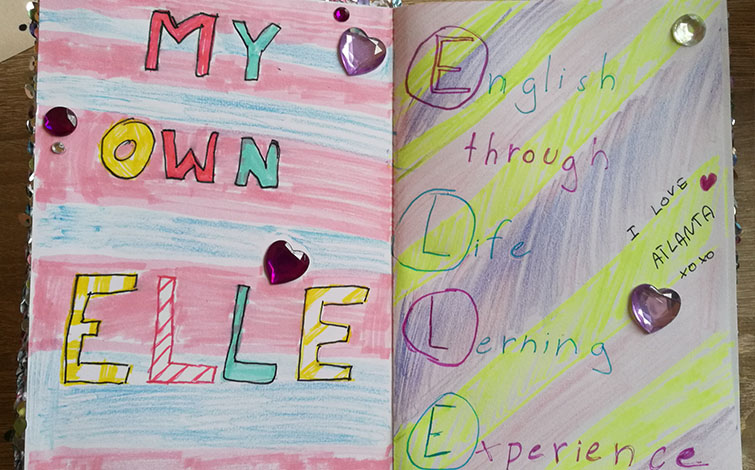 MY
OWN
ELLE
English
through
Life
Lerning
Experience
I LOVE
ATLANTA
xoxo